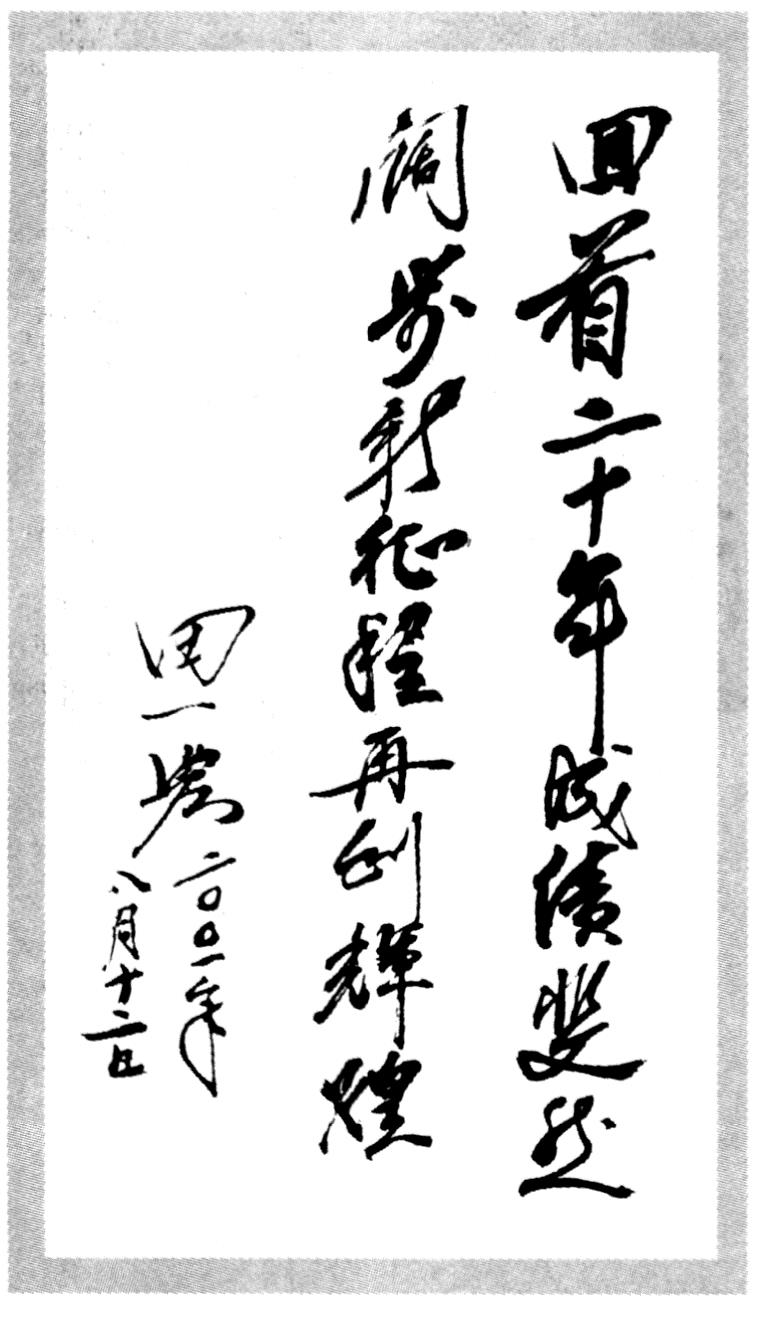 回首二十年成绩斐然
阔步新征程再创辉煌
田一農
二〇〇一年
八月十二日